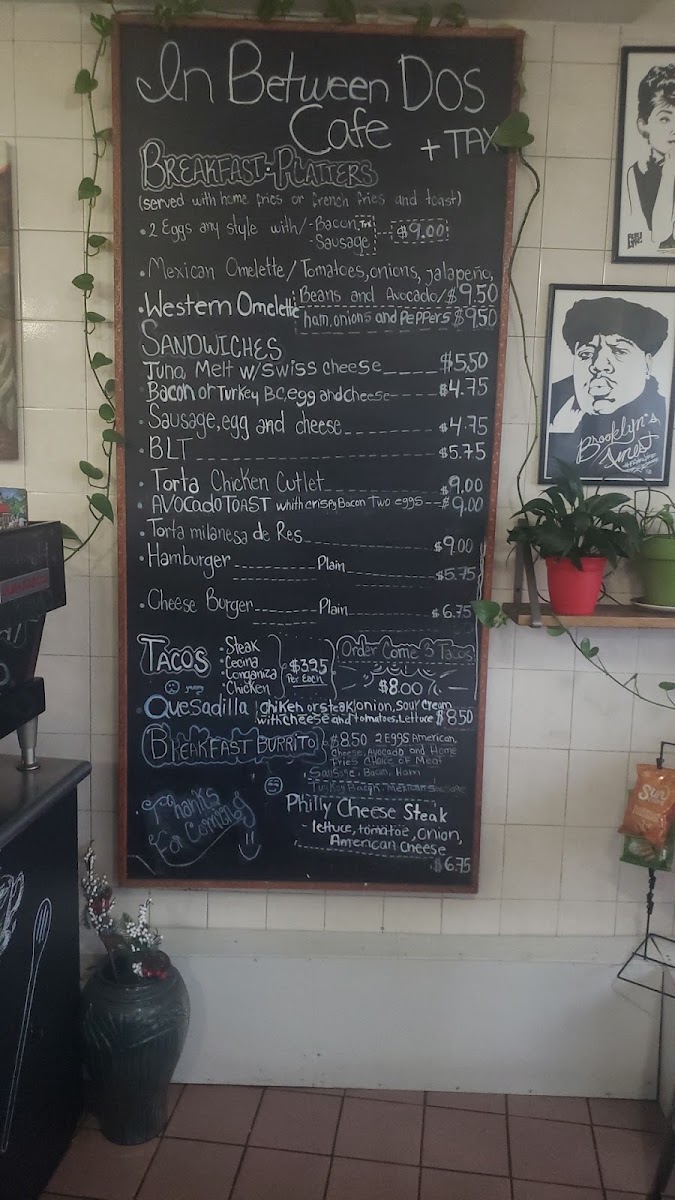 In Between Dos
Cafe
+ TAX
BREAKFAST-PLATTERS
(served with home fries or french fries and toast)
• 2 Eggs any style with/-Bacon
Sausage
$9.00
• Mexican Omelette/Tomatoes,onions, jalapeño,
Beans and Avocado/$9.50
• Western Omelette ham,onions and Peppers $9.50
SANDWICHES
Tuna Melt w/swiss cheese $5.50
Bacon or Turkey BC,egg and cheese $4.75
• Sausage,egg and cheese $4.75
• BLT $5.75
• Torta Chicken Cutlet $9.00
• AVOCADO TOAST whith crispy Bacon Two eggs $9.00
• Torta milanesa de Res $9.00
• Hamburger Plain $5.75
• Cheese Burger Plain $6.75
TACOS
• Steak
• Cecina
• Longaniza
• Chicken
$3.95
Per Each
Order Come 3 Tacos
$8.00
Quesadilla chiken or steak,onion, Sour cream
with cheese and tomatoes, Letture $8.50
BREAKFAST BURRITO $8.50 2 EGGS American
Cheese, Avocado and Home
fries choice of Meat
Sausage, Bacon, Ham
Turkey Bacon, Mexican Sausage
Thanks
For Coming
Philly Cheese Steak
- lettuce, tomatoe, onion,
American cheese
$6.75
Brooklyn's
Finest
Sun